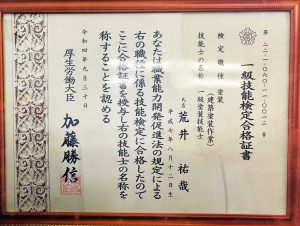 第二二-一-〇六〇-一一-〇〇一二号
一級技能検定合格証書
検定職種 塗装
(建築塗装作業)
技能士の名称 一級塗装技能士
氏名 荒井祐哉
平成七年八月十二日生
あなたは職業能力開発促進法の規定による
右の職種に係る技能検定に合格したので
ここに合格証書を授与し右の技能士の名称を
称することを認める
令和四年九月三十日
厚生労働大臣 加藤勝信